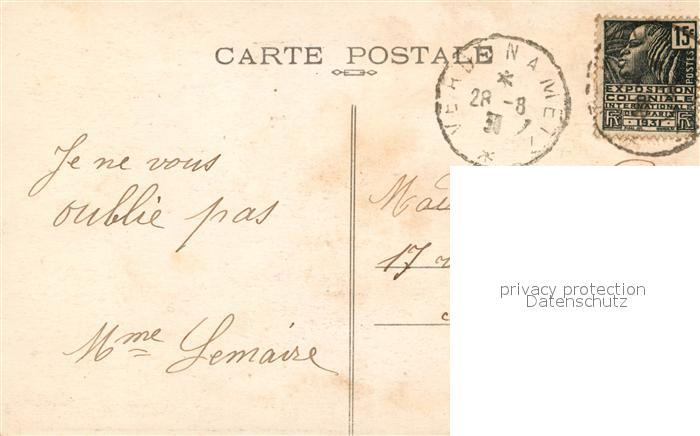 CARTE POSTALE
VERDUN A METZ
28-8
31
15c
POSTES
EXPOSITION
COLONIALE
INTERNATIONALE
DE PARIS
1931
Je ne vous
oublie pas
Mme Lemaire
17
privacy protection
Datenschutz